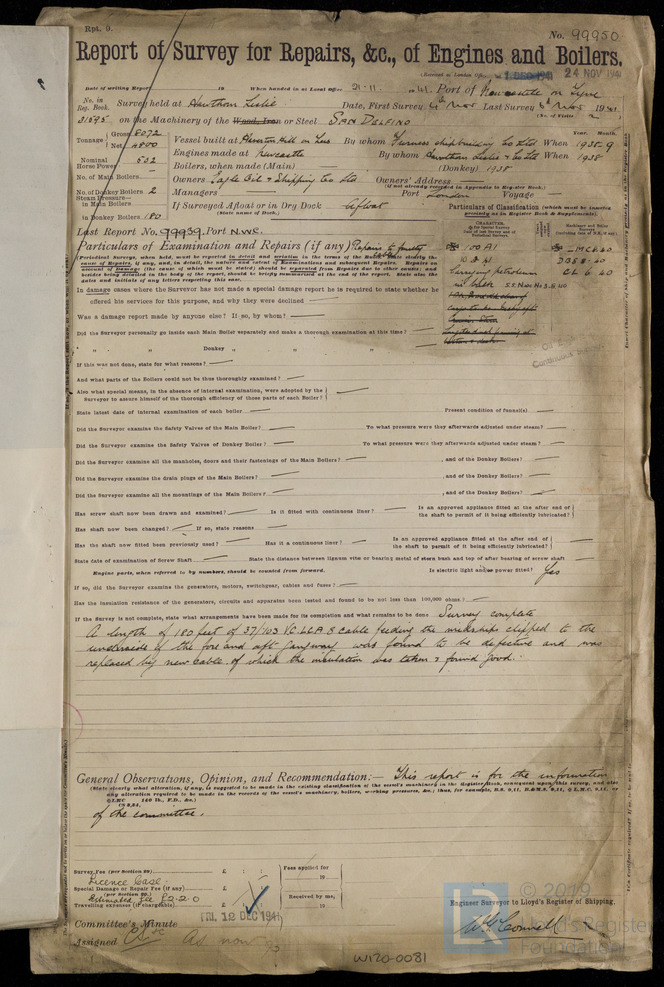 Rpt. 9.
No. 99950
Report of Survey for Repairs, &c., of Engines and Boilers.
(Received at London Office 1 DEC 1941 24 NOV 1941
Date of writing Report 19 When handed in at Local Office 21·11 1941. Port of Newcastle on Tyne
No. in Reg. Book. Survey held at Hawthorn Leslie Date, First Survey 4th Nov Last Survey 6th Nov 1941
31595 on the Machinery of the Wood, Iron or Steel SAN DELFINO (No. of Visits 2
Tonnage Gross 8072 Net 4800 Vessel built at Haverton Hill on Tees By whom Furness Shipbuilding Co Ltd When 1938-9
Year. Month.
Nominal Horse Power 502 Engines made at Newcastle By whom Hawthorn Leslie & Co Ltd When 1938
No. of Main Boilers — Boilers, when made (Main) (Donkey) 1938
No. of Donkey Boilers 2 Owners Eagle Oil & Shipping Co Ltd Owners' Address
(if not already recorded in Appendix to Register Book.)
Steam Pressure— in Main Boilers Managers Port London Voyage —
in Donkey Boilers 180 If Surveyed Afloat or in Dry Dock Afloat
(State name of Dock.)
Particulars of Classification (which must be inserted precisely as in Register Book & Supplements).
Last Report No. 99939 Port N.W.C.
Particulars of Examination and Repairs (if any) Repairs to faulty cable
100 A1
LMC 6.40
DBS 8.40
Carrying petroleum CL 6.40
in bulk S.S. Nwc No 3.5.40
In damage cases where the Surveyor has not made a special damage report he is required to state whether he
offered his services for this purpose, and why they were declined —
Was a damage report made by anyone else? If so, by whom? —
Did the Surveyor personally go inside each Main Boiler separately and make a thorough examination at this time? —
" " Donkey " " " "
If this was not done, state for what reasons? —
And what parts of the Boilers could not be thoroughly examined? —
Also what special means, in the absence of internal examination, were adopted by the
Surveyor to assure himself of the thorough efficiency of those parts of each Boiler? —
State latest date of internal examination of each boiler — Present condition of funnel(s) —
Did the Surveyor examine the Safety Valves of the Main Boiler? — To what pressure were they afterwards adjusted under steam? —
Did the Surveyor examine the Safety Valves of Donkey Boiler? — To what pressure were they afterwards adjusted under steam? —
Did the Surveyor examine all the manholes, doors and their fastenings of the Main Boilers? — , and of the Donkey Boilers? —
Did the Surveyor examine the drain plugs of the Main Boilers? — , and of the Donkey Boilers? —
Did the Surveyor examine all the mountings of the Main Boilers? — , and of the Donkey Boilers? —
Has screw shaft now been drawn and examined? — Is it fitted with continuous liner? — Is an approved appliance fitted at the after end of the shaft to permit of it being efficiently lubricated? —
Has shaft now been changed? — If so, state reasons —
Has the shaft now fitted been previously used? — Has it a continuous liner? — Is an approved appliance fitted at the after end of the shaft to permit of it being efficiently lubricated? —
State date of examination of Screw Shaft — State the distance between lignum vitæ or bearing metal of stern bush and top of after bearing of screw shaft —
Engine parts, when referred to by numbers, should be counted from forward. Is electric light and/or power fitted? Yes
If so, did the Surveyor examine the generators, motors, switchgear, cables and fuses? —
Has the insulation resistance of the generators, circuits and apparatus been tested and found to be not less than 100,000 ohms? —
If the Survey is not complete, state what arrangements have been made for its completion and what remains to be done Survey complete
A length of 180 feet of 37/103 VC.LCA & cable feeding the midships clipped to the
underside of the fore and aft gangway was found to be defective and was
replaced by new cable of which the insulation was taken & found good.
General Observations, Opinion, and Recommendation:— This report is for the information
(State clearly what alteration, if any, is suggested to be made in the existing classification of the vessel's machinery in the Register Book, consequent upon this survey, and also
any alteration required to be made in the records of the vessel's machinery, boilers, working pressures, &c.;
of the committee.
Survey Fee (per Section 29) £ : : Fees applied for
Licence Case. 19
Special Damage or Repair Fee (if any) £
(per Section 29.)
Estimated fee £2-2-0 Received by me,
Travelling expenses (if chargeable) £ 19
Engineer Surveyor to Lloyd's Register of Shipping.
Committee's Minute FRI. 12 DEC 1941
Assigned As now
© 2019
LR Lloyd's Register
Foundation
W170-0081